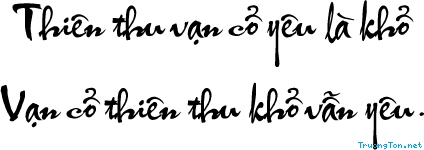 Thiên thu vạn cổ yêu là khổ
Vạn cổ thiên thu khổ vẫn yêu.
TruongTon.net